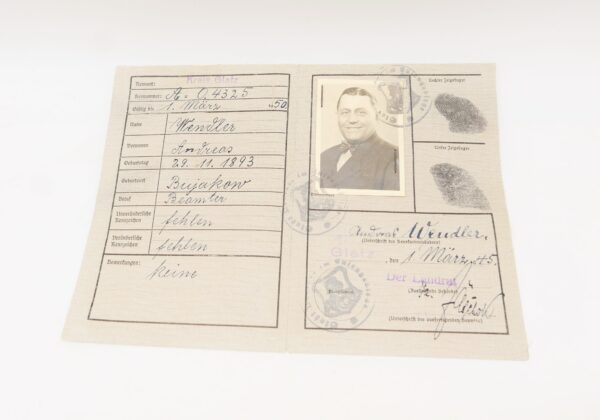 Kreis Glatz
Kennnummer: A. 0,4325
Gültig bis 1. März 1950
Name Wendler
Vornamen Andreas
Geburtstag 29. 11. 1893
Geburtsort Bujakow
Beruf Beamter
Unveränderliche Kennzeichen fehlen
Veränderliche Kennzeichen fehlen
Bemerkungen: keine
Rechter Zeigefinger
Linker Zeigefinger
Andreas Wendler.
(Unterschrift des Kennkarteninhabers)
Glatz, den 1. März 45.
Der Landrat
(Ausstellende Behörde)
(Unterschrift des ausfertigenden Beamten)